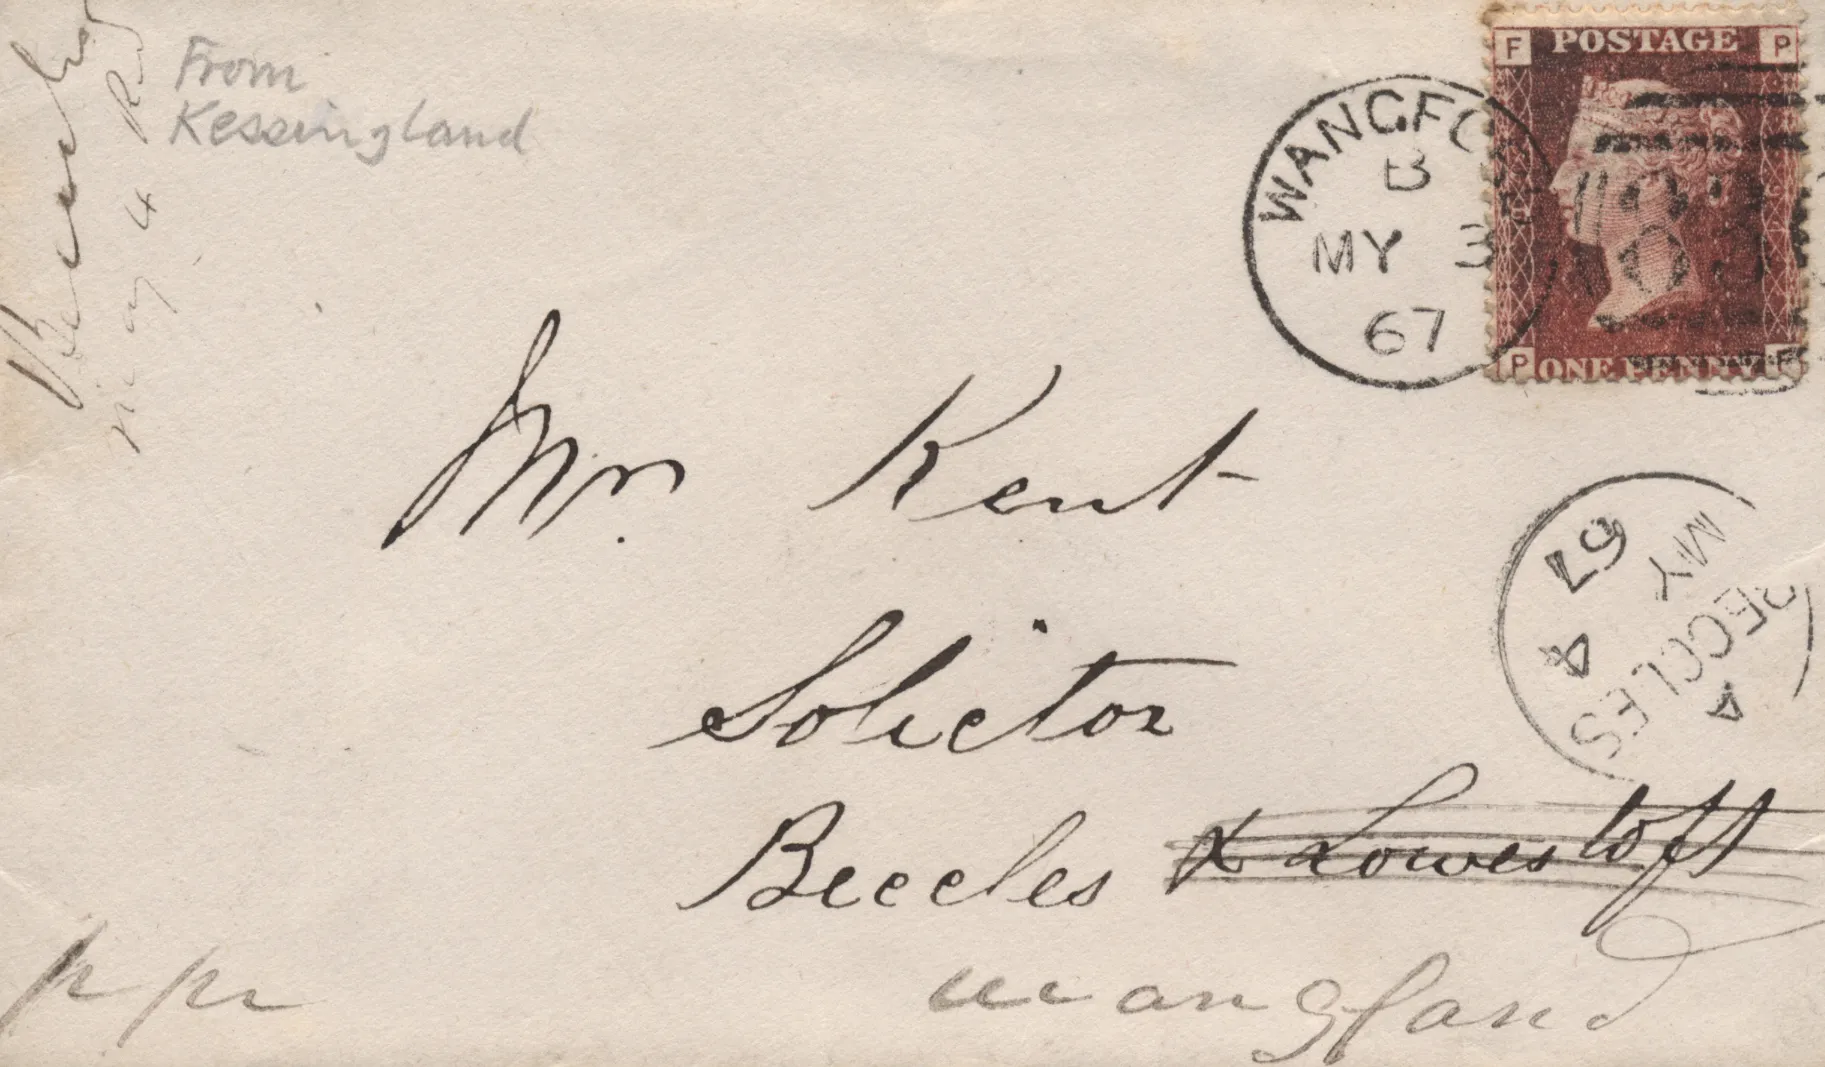 From
Kessingland
May 4
F POSTAGE P
P ONE PENNY F
WANGFO
B
MY 3
67
Mr. Kent
Solicitor
Beccles & Lowestoft
BECCLES
A
MY 4
67